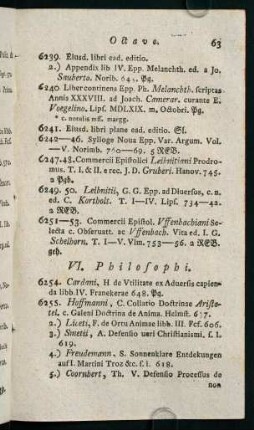 Octavo. 63
6239. Eiusd. libri ead. editio.
2.) Appendix lib IV. Epp. Melanchth. ed. a Jo.
Sauberto. Norib. 645. Pg.
6240 Libercontinens Epp. Ph. Melanchth. scriptas
Annis XXXVIII. ad Joach. Camerar. curante E.
Voegelino. Lips. MDLXIX. m. Octobri. Pg.
* c. notulis mſſ. margg.
6241. Eiusd. libri plane ead. editio. Sl.
6242—46. Sylloge Noua Epp. Var. Argum. Vol.
I—V. Norimb. 760—69. 5 REB.
6247.48. Commercii Epistolici Leibnitiani Prodro-
mus. T. I. & II. e rec. J. D. Gruberi. Hanov. 745.
2 Pgb.
6249. 50. Leibnitii, G. G. Epp. ad Diuersos, c. n.
ed. C. Kortholt. T. I—IV. Lips. 734—42.
2 REB.
6251—53. Commercii Epistol. Uffenbachiani Se-
lecta c. Obseruatt. ac Uffenbach. Vita ed. I. G.
Schelhorn. T. I—V. Vlm. 753—56. 2 REB.
geh.
VI. Philosophi.
6254. Cardani, H de Vtilitate ex Aduersis capien-
da libb IV. Franequerae 648. Pg.
6255. Hoffmanni, C. Collatio Doctrinae Ariſto-
tel. c. Galeni Doctrina de Anima. Helmst. 637.
2.) Liceti, F. de Ortu Animae libb. III. Fcf. 606.
3.) Smetii, A. Defensio ueri Christianismi. f. l.
619.
4.) Freudemann. S. Sonnenklare Entdekungen
auf I. Martini Troz &c. f. l. 618.
5.) Coornhert, Th. V. Defensio Processus de
non